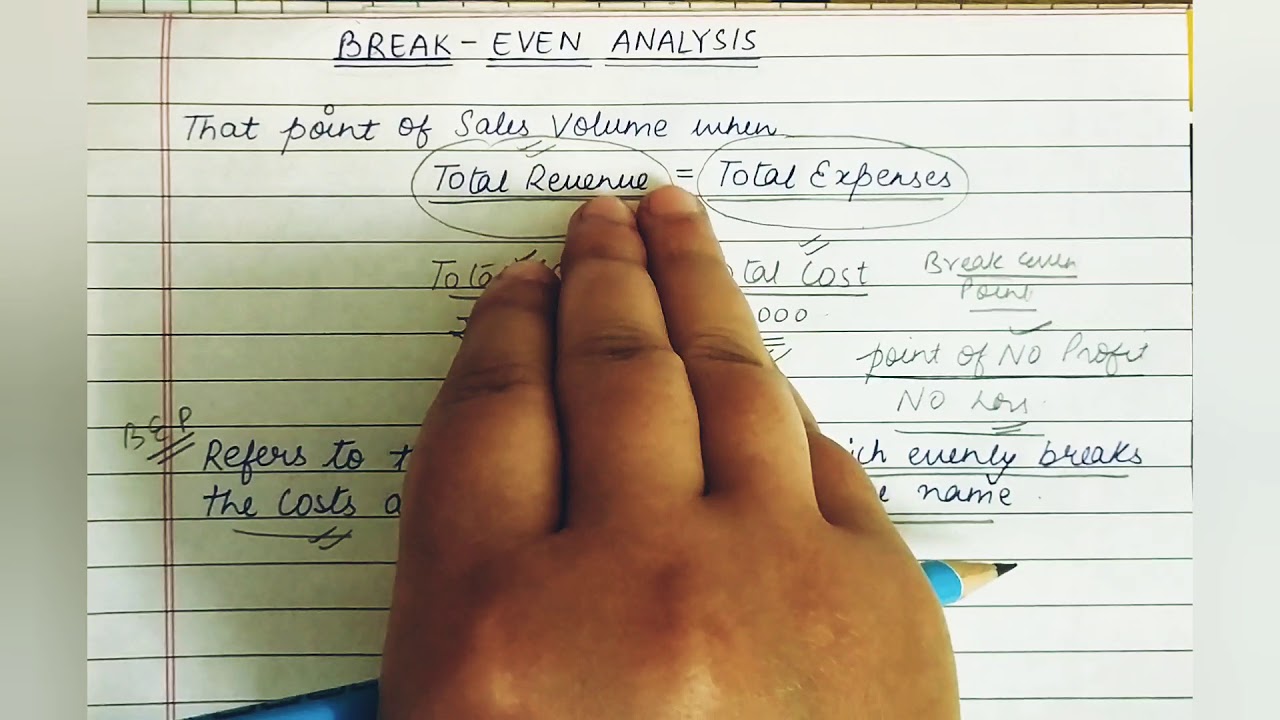 BREAK - EVEN ANALYSIS
That point of Sales Volume when
Total Revenue = Total Expenses
Cost
Break even
Point
000
point of No Profit
No Loss
BEP
Refers to evenly breaks
the Costs name.